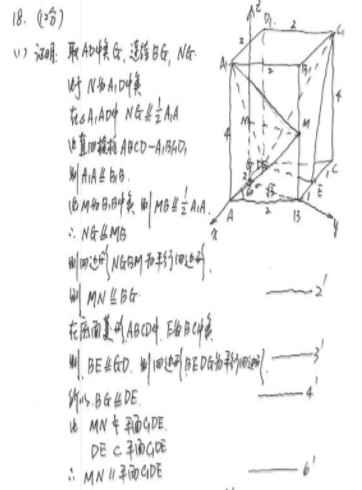 18. (12分)
(1) 证明: 取AD中点G, 连接BG, NG.
N为A₁D中点
在△A₁AD中 NG⫽½A₁A
由直四棱柱ABCD-A₁B₁C₁D₁
则A₁A⫽B₁B.
由M为B₁B中点 则MB⫽½A₁A.
∴ NG⫽MB
则四边形NGBM为平行四边形,
则 MN⫽BG —— 2'
在底面菱形ABCD中, E为BC中点
则 BE⫽GD. 则四边形BEDG为平行四边形. —— 3'
所以 BG⫽DE. —— 4'
MN⊄平面C₁DE
DE⊂平面C₁DE
∴ MN∥平面C₁DE —— 6'
z
D₁
2
C₁
A₁
2
B₁
4
4
4
N
M
G
D
C
E
A
2
B
x
y